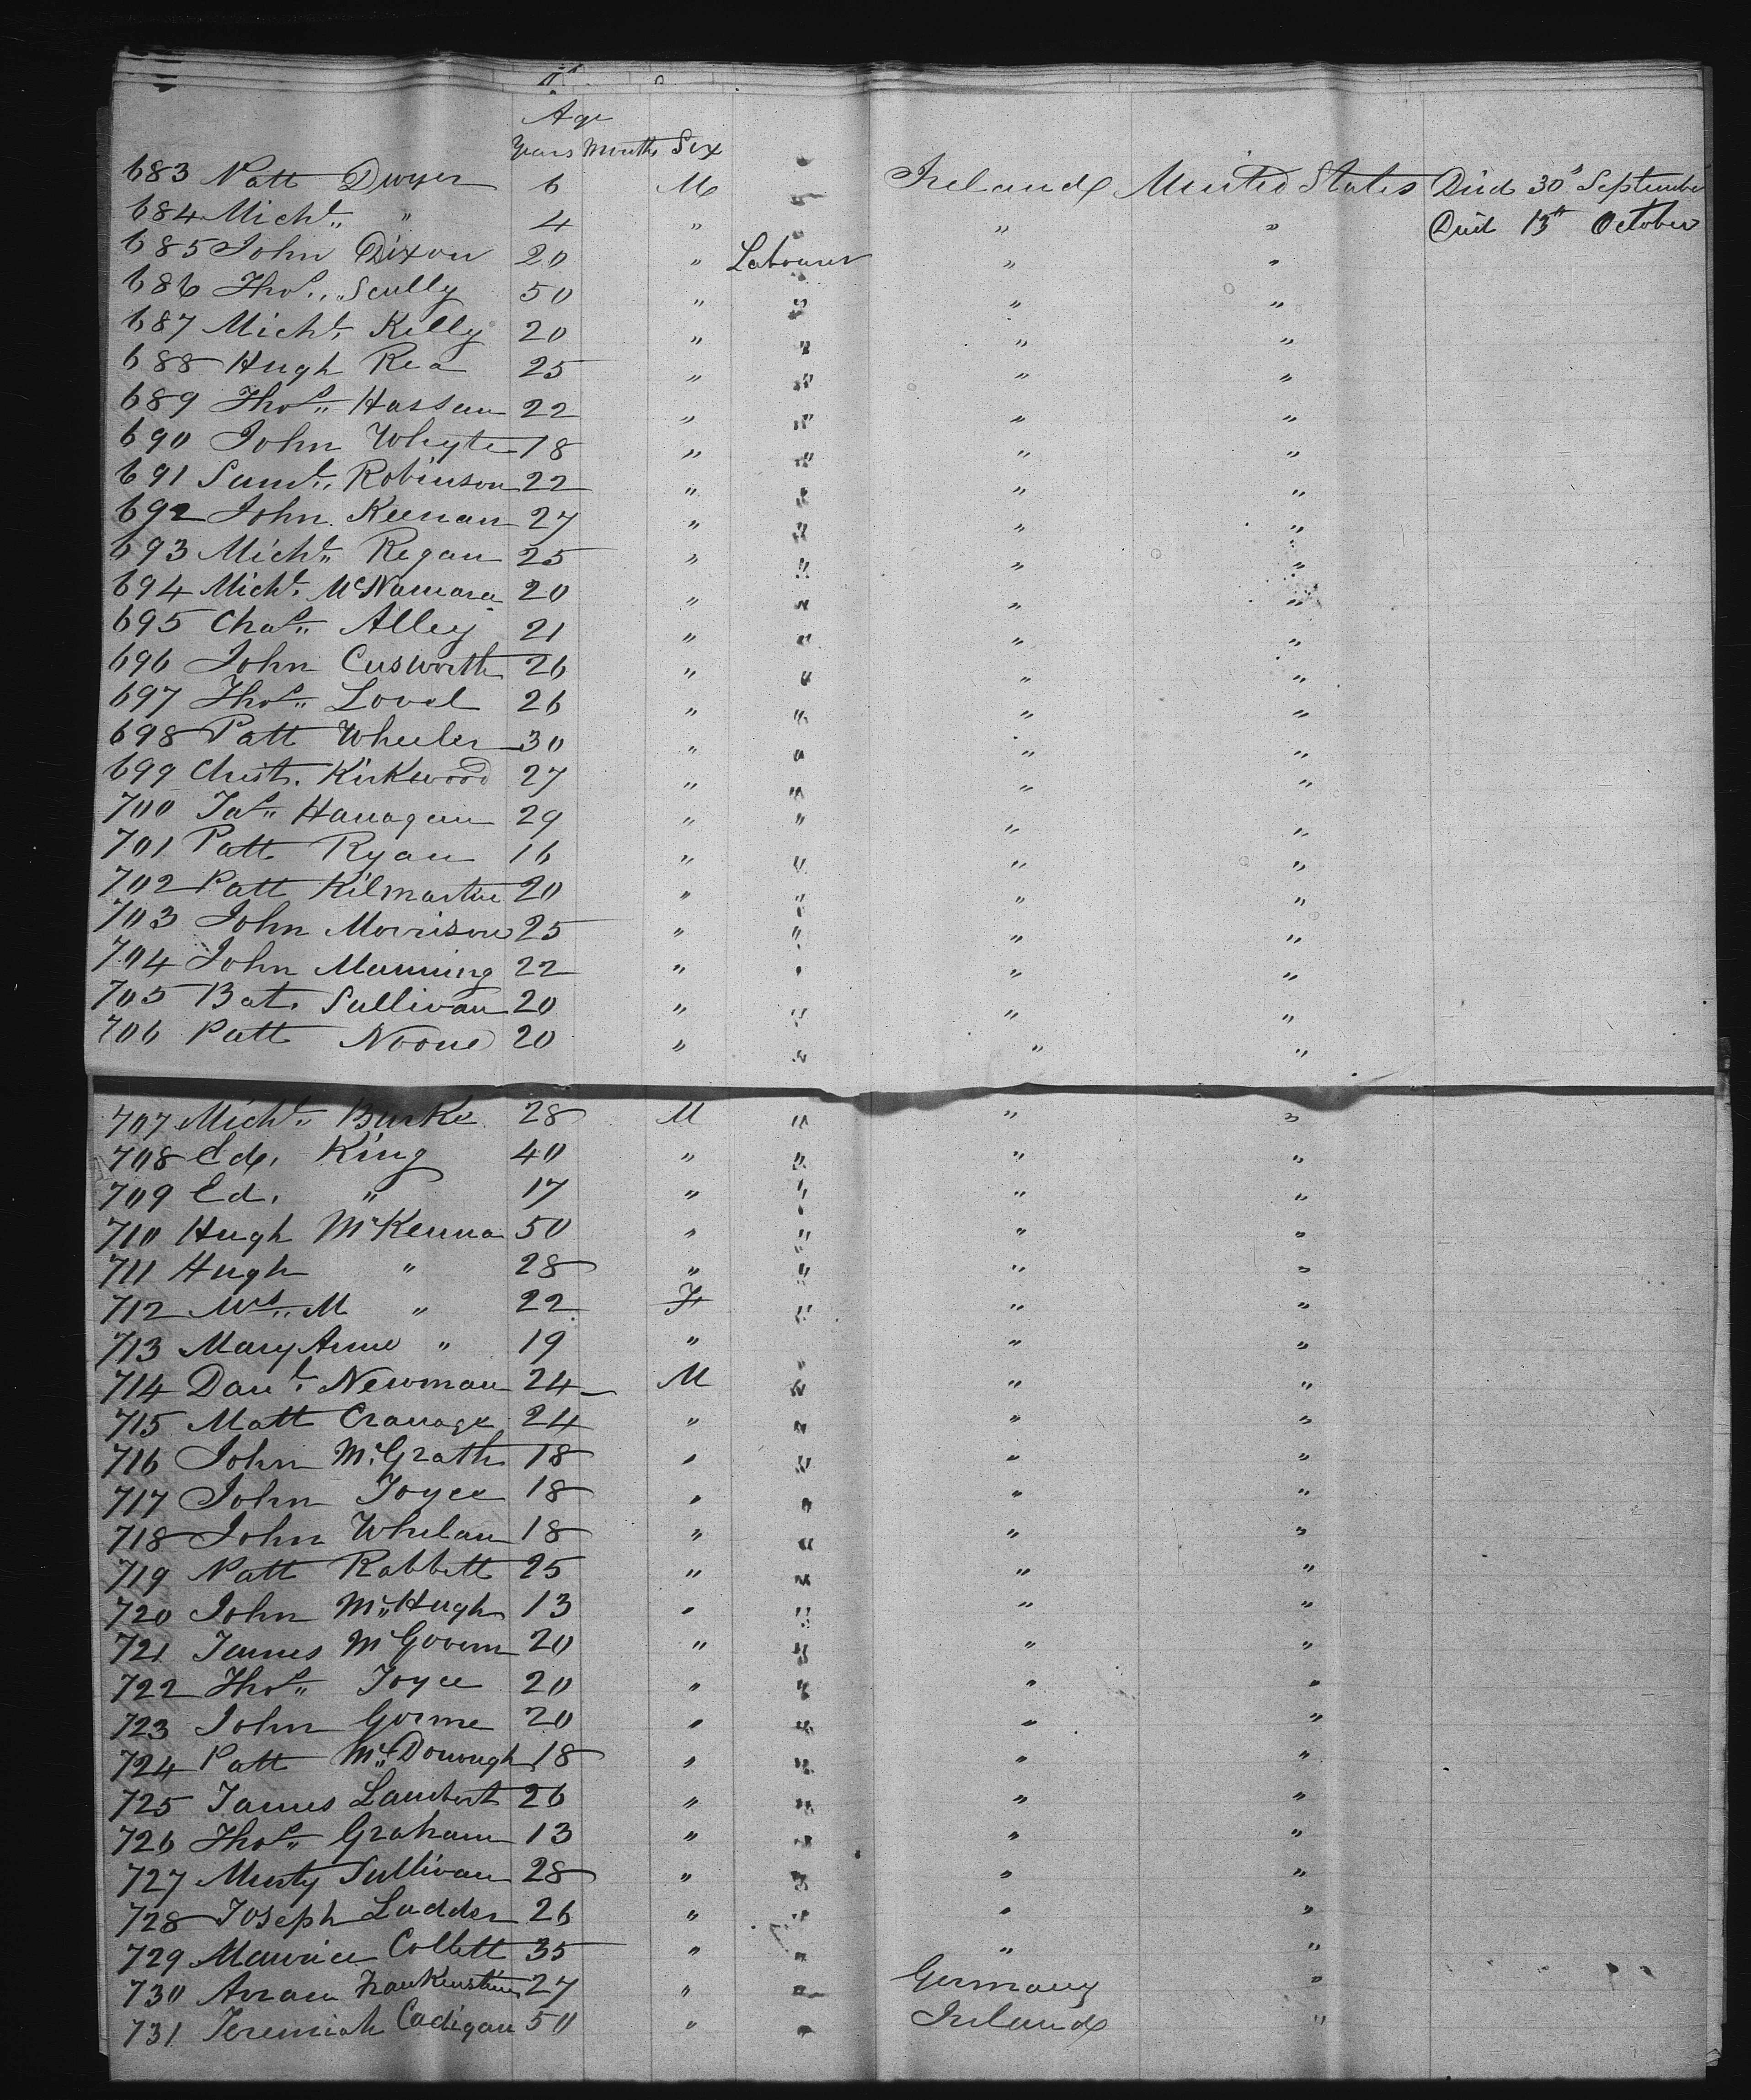 Age
Years Months Sex
683 Patt Dwyer 6 M Ireland United States Died 30th September
684 Michl. " 4 " " " Died 13th October
685 John Dixon 20 " Labourer " "
686 Thos. Scully 50 " " " "
687 Michl. Kelly 20 " " " "
688 Hugh Rea 25 " " " "
689 Thos. Hassan 22 " " " "
690 John Whyte 18 " " " "
691 Saml. Robinson 22 " " " "
692 John Keenan 27 " " " "
693 Michl. Regan 25 " " " "
694 Michl. McNamara 20 " " " "
695 Chas. Alley 21 " " " "
696 John Cusworth 26 " " " "
697 Thos. Lovel 26 " " " "
698 Patt Wheeler 30 " " " "
699 Christ. Kirkwood 27 " " " "
700 Jas. Hanagan 29 " " " "
701 Patt Ryan 16 " " " "
702 Patt Kilmartin 20 " " " "
703 John Morrison 25 " " " "
704 John Manning 22 " " " "
705 Bat. Sullivan 20 " " " "
706 Patt Noone 20 " " " "
707 Michl. Burke 28 M " " "
708 Ed. King 40 " " " "
709 Ed. " 17 " " " "
710 Hugh McKenna 50 " " " "
711 Hugh " 28 " " " "
712 Mrs. M " 22 F " " "
713 Mary Anne " 19 " " "
714 Danl. Newman 24 M " " "
715 Matt Cranage 24 " " " "
716 John McGrath 18 " " " "
717 John Joyce 18 " " " "
718 John Whelan 18 " " " "
719 Patt Rabbett 25 " " " "
720 John McHugh 13 " " " "
721 James McGovern 20 " " " "
722 Thos. Joyce 20 " " " "
723 John Gorme 20 " " " "
724 Patt McDonough 18 " " " "
725 James Lambert 26 " " " "
726 Thos. Graham 13 " " " "
727 Murty Sullivan 28 " " " "
728 Joseph Ludder 26 " " " "
729 Maurice Collett 35 " " " "
730 Frankenstein 27 " " Germany "
731 Jeremiah Cadigan 50 " " Ireland "